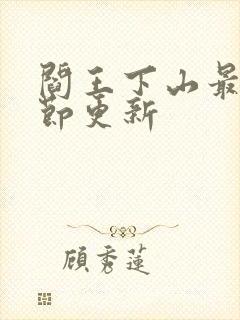 閻王下山最
節更新
顧秀蓮